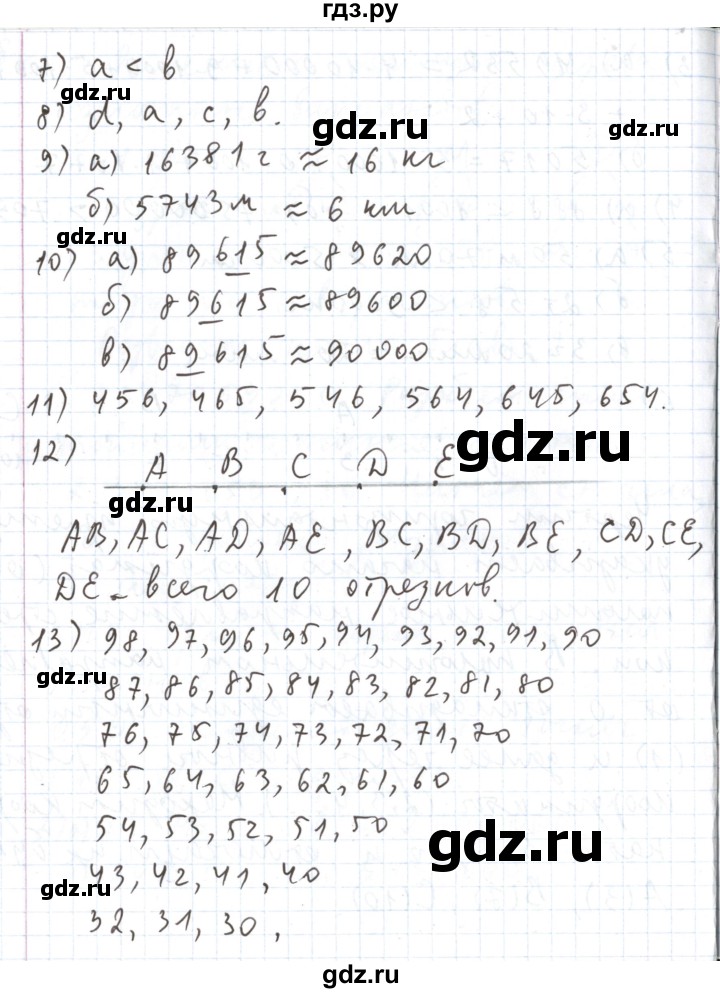 гдз.ру
7) a < b
gdz.ru
8) d, a, c, b.
gdz.ru
gdz.ru
9) а) 16381 г ≈ 16 кг
б) 5743 м ≈ 6 км
gdz.ru
10) а) 89615 ≈ 89620
б) 89615 ≈ 89600
в) 89615 ≈ 90000
11) 456, 465, 546, 564, 645, 654.
gdz.ru
12)
A B C D E
gdz.ru
AB, AC, AD, AE, BC, BD, BE, CD, CE,
DE - всего 10 отрезков.
13) 98, 97, 96, 95, 94, 93, 92, 91, 90
gdz.ru
87, 86, 85, 84, 83, 82, 81, 80
76, 75, 74, 73, 72, 71, 70
65, 64, 63, 62, 61, 60
54, 53, 52, 51, 50
gdz.ru
43, 42, 41, 40
gdz.ru
32, 31, 30,
gdz.ru